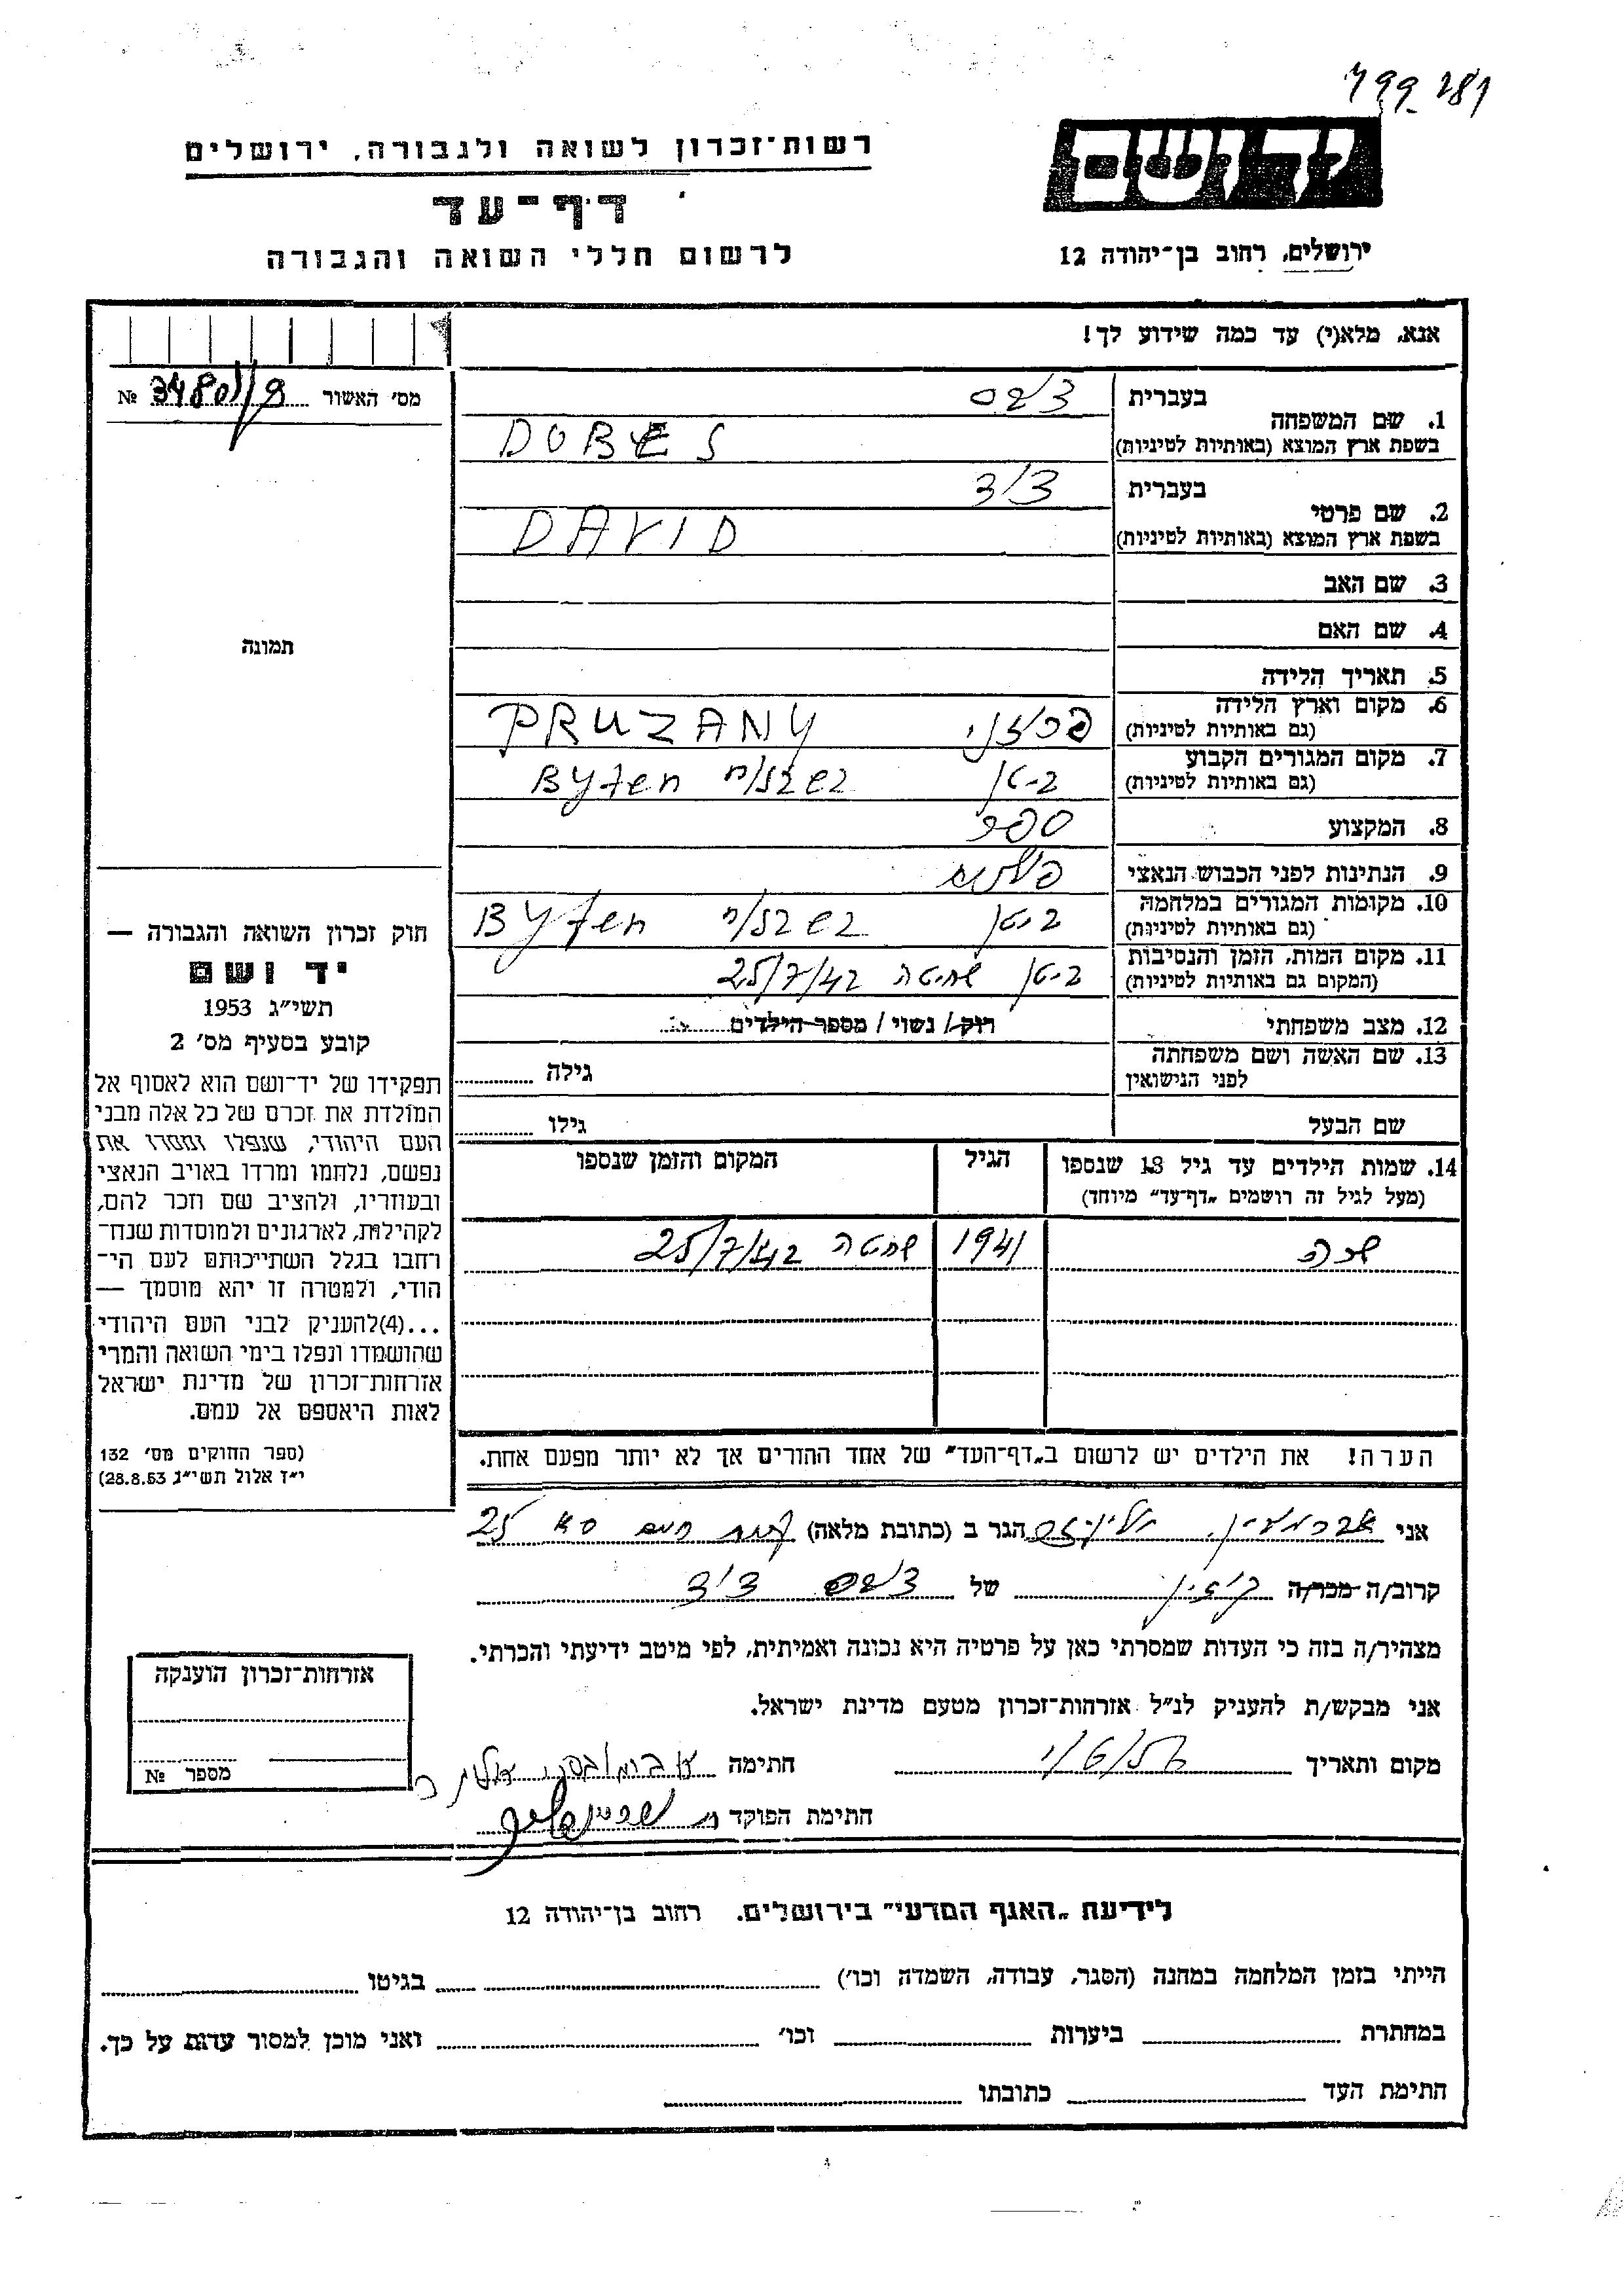 יד ושם
רשות־זכרון לשואה ולגבורה, ירושלים
דף־עד
ירושלים, רחוב בן־יהודה 12
לרשום חללי השואה והגבורה
אנא, מלא(י) עד כמה שידוע לך!
מס׳ האשור № 3480
1. שם המשפחה
בעברית דבס
בשפת ארץ המוצא (באותיות לטיניות) DOBES
2. שם פרטי
בעברית דוד
בשפת ארץ המוצא (באותיות לטיניות) DAVID
3. שם האב
4. שם האם
תמונה
5. תאריך הלידה
6. מקום וארץ הלידה
(גם באותיות לטיניות) פרוזני PRUZANY
7. מקום המגורים הקבוע
(גם באותיות לטיניות) ביטן Byten
8. המקצוע ספר
9. הנתינות לפני הכבוש הנאצי
10. מקומות המגורים במלחמה
(גם באותיות לטיניות) ביטן Byten
11. מקום המות, הזמן והנסיבות
(המקום גם באותיות לטיניות) ביטן שחיטה 25/7/42
12. מצב משפחתי רוק / נשוי / מספר הילדים
13. שם האשה ושם משפחתה
לפני הנישואין גילה
שם הבעל גילו
14. שמות הילדים עד גיל 18 שנספו הגיל המקום והזמן שנספו
(מעל לגיל זה רושמים „דף־עד״ מיוחד)
שרה 1941 שחיטה 25/7/42
הערה! את הילדים יש לרשום ב„דף־העד״ של אחד ההורים אך לא יותר מפעם אחת.
חוק זכרון השואה והגבורה —
יד ושם
תשי״ג 1953
קובע בסעיף מס׳ 2
תפקידו של יד־ושם הוא לאסוף אל
המולדת את זכרם של כל אלה מבני
העם היהודי, שנפלו ומסרו את
נפשם, נלחמו ומרדו באויב הנאצי
ובעוזריו, ולהציב שם וזכר להם,
לקהילות, לארגונים ולמוסדות שנח־
רחבו בגלל השתייכותם לעם הי־
הודי, ולמטרה זו יהא מוסמך —
...(4)להעניק לבני העם היהודי
שהושמדו ונפלו בימי השואה והמרי
אזרחות־זכרון של מדינת ישראל
לאות היאספם אל עמם.
(ספר החוקים מס׳ 132
י״ז אלול תשי״ג 28.8.53)
אני הגר ב (כתובת מלאה) 25
קרוב/ה מכר/ה של דבס דוד
מצהיר/ה בזה כי העדות שמסרתי כאן על פרטיה היא נכונה ואמיתית, לפי מיטב ידיעתי והכרתי.
אני מבקש/ת להעניק לנ״ל אזרחות־זכרון מטעם מדינת ישראל.
מקום ותאריך חתימה
חתימת הפוקד
אזרחות־זכרון הוענקה
מספר №
לידיעת „האגף המדעי״ בירושלים. רחוב בן־יהודה 12
הייתי בזמן המלחמה במחנה (הסגר, עבודה, השמדה וכו׳) בגיטו
במחתרת ביערות וכו׳ ואני מוכן למסור עדות על כך.
חתימת העד כתובתו